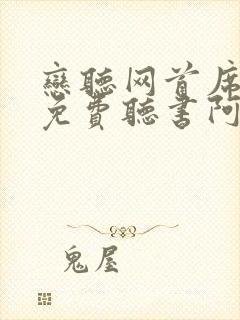 戀聽网首席
免費聽書阿
鬼屋